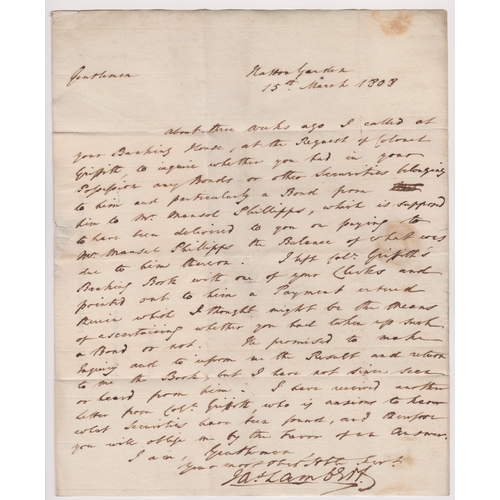 Gentlemen
Hatton Garden
15th March 1808
About three weeks ago I called at
your Banking House, at the Request of Colonel
Griffith, to inquire whether you had in your
Possession any Bonds or other Securities belonging
to him and particularly a Bond from
him to Mr Mansel Phillipps, which is supposed
to have been delivered to you on paying to
Mr Mansel Phillipps the Balance of what was
due to him thereon. I left Col. Griffith's
Banking Book with one of your Clerks and
pointed out to him a Payment entered
therein which I thought might be the Means
of ascertaining whether you had taken up such
a Bond or not. He promised to make
Inquiry and to inform me the Result and return
to me the Book, but I have not since seen
or heard from him. I have received another
letter from Col. Griffith, who is anxious to know
what Securities have been found, and therefore
you will oblige me by the Favor of an Answer.
I am, Gentlemen
Your most Obed Hble Servt
Jas Lambert